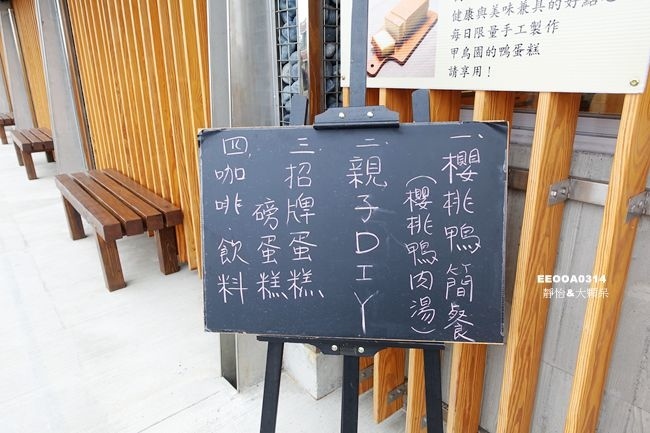 健康與美味兼具的好點心
每日限量手工製作
甲鳥園的鴨蛋糕
請享用！
一、櫻桃鴨簡餐
（櫻桃鴨肉湯）
二、親子DIY
三、招牌蛋糕
磅蛋糕
四、咖啡、飲料
EEOOA0314
靜怡&大顆呆